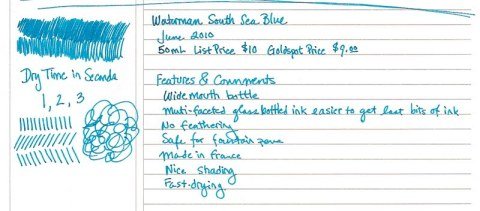 Waterman South Sea Blue
June 2010
50mL List Price $10 Goldspot Price $9.00
Dry Time in Seconds
1, 2, 3
Features & Comments
Wide mouth bottle
Muti-faceted glass bottled ink easier to get last bits of ink
No feathering
Safe for fountain pens
Made in France
Nice shading
Fast-drying